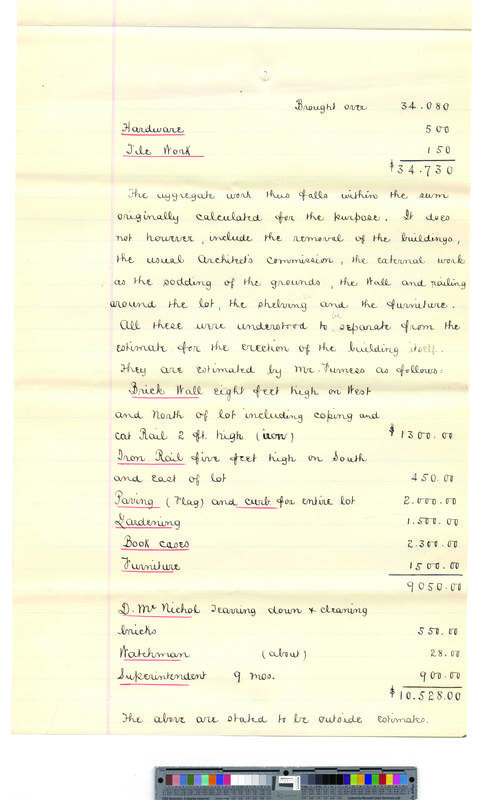 Brought over 34.080
Hardware 500
Tile Work 150
$34.730
The aggregate work thus falls within the sum
originally calculated for the purpose. It does
not however, include the removal of the buildings,
the usual Architect's commission, the external work
as the sodding of the grounds, the Wall and railing
around the lot, the shelving and the furniture.
All these were understood to be separate from the
estimate for the erection of the building itself.
They are estimated by Mr. Furness as follows:
Brick Wall eight feet high on West
and North of lot including coping and
cat Rail 2 ft. high (iron) $1300.00
Iron Rail five feet high on South
and East of lot 450.00
Paving (Flag) and curb for entire lot 2.000.00
Gardening 1.500.00
Book cases 2.300.00
Furniture 1500.00
9050.00
D. Mc Nichol Tearing down & cleaning
bricks 550.00
Watchman (about) 28.00
Superintendent 9 mos. 900.00
$10,528.00
The above are stated to be outside estimates.